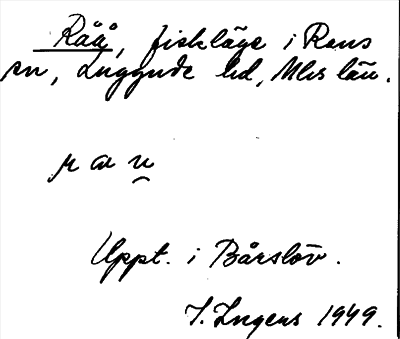 Råå, fiskläge i Raus
sn, Luggude hd, Mlhs län.
r a u
Uppt. i Bårslöv.
I. Ingers 1949.